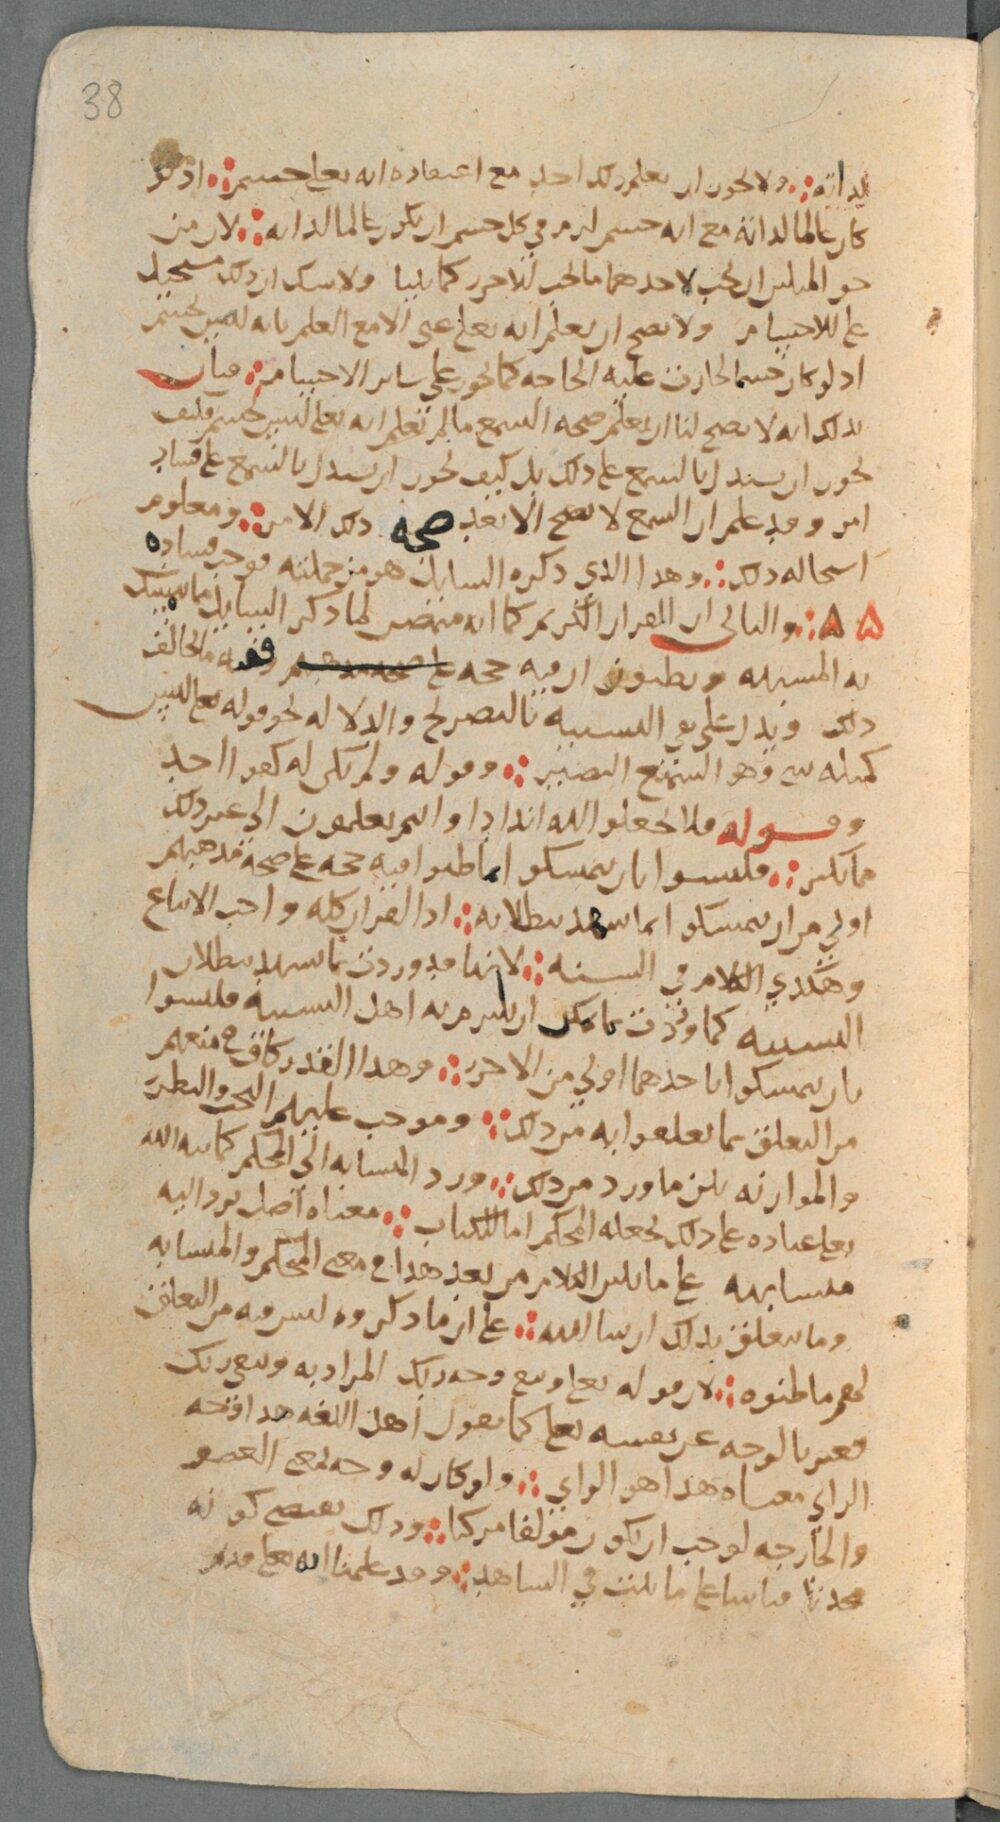 38
لذاته ولا يجوز ان يعلم ذلك احد مع اعتقاده انه تعلى جسم اذ لو
كان عالما لذاته مع انه جسم لزم في كل جسم ان يكون عالما لذاته لان من
حق المثلين ان يجب لاحدهما ما يجب للاخر كما بينا ولا شك ان ذلك مستحيل
على الاجسام ولا يصح ان يعلم انه تعلى غني الا مع العلم بانه ليس بجسم
اذ لو كان جسما لجازت عليه الحاجه كما تجوز على سائر الاجسام فبان
بذلك انه لا يصح لنا ان نعلم صحه السمع ما لم نعلم انه تعلى ليس بجسم فكيف
يجوز ان يستدل بالسمع على ذلك بل كيف يجوز ان يستدل بالسمع على فساد
امر وقد علم ان السمع لا يصح الا بعد صحه ذلك الامر ومعلوم
استحاله ذلك وهذا الذي ذكره السائل هو من جملته فوجب فساده
والثاني ان القران الكريم كما انه متضمن لما ذكر السائل مما تمسك
به المشبهه ويظنون ان فيه حجه على صحه مذهبهم ففيه ما يخالف
ذلك ويدل على نفي التشبيه بالتصريح والدلاله نحو قوله تعلى ليس
كمثله شي وهو السميع البصير وقوله ولم يكن له كفوا احد
وقوله فلا تجعلوا لله اندادا وانتم تعلمون الى غير ذلك
مما يكثر فليسوا بان يتمسكوا بما ظنوا فيه حجه على صحه مذهبهم
اولى من ان يتمسكوا بما يشهد ببطلانه اذ القران كله واجب الاتباع
وهكذي الكلام في السنه لانها قد وردت بما يشهد ببطلان
التشبيه كما وردت بما يمكن ان يلتزم به اهل التشبيه فليسوا
بان يتمسكوا باحدهما اولى من الاخر وهذا القدر كاف في منعهم
من التعلق بما تعلقوا به من ذلك وموجب عليهم البحث والنظر
والموازنه بين ما ورد من ذلك ورد المتشابه الى المحكم كما نبه الله
تعلى عباده على ذلك بجعله المحكم اما للكتاب معناه اصل يرد اليه
متشابهه على ما يبين الكلام من بعد هذا في معنى المحكم والمتشابه
وما يتعلق بذلك ان شا الله على ان ما ذكروه ليس فيه من التعلق
لهم ما ظنوه لان قوله تعلى ويبقى وجه ربك المراد به ويبقى ربك
فعبر بالوجه عن نفسه تعلى كما يقول اهل اللغه هذا وجه
الراي معناه هذا هو الراي ولو كان له وجه بمعنى العضو
والجارحه لوجب ان يكون مولفا مركبا وذلك يقتضي كونه
محدثا قياسا على ما ثبت في الشاهد وقد علمنا انه تعلى قديم